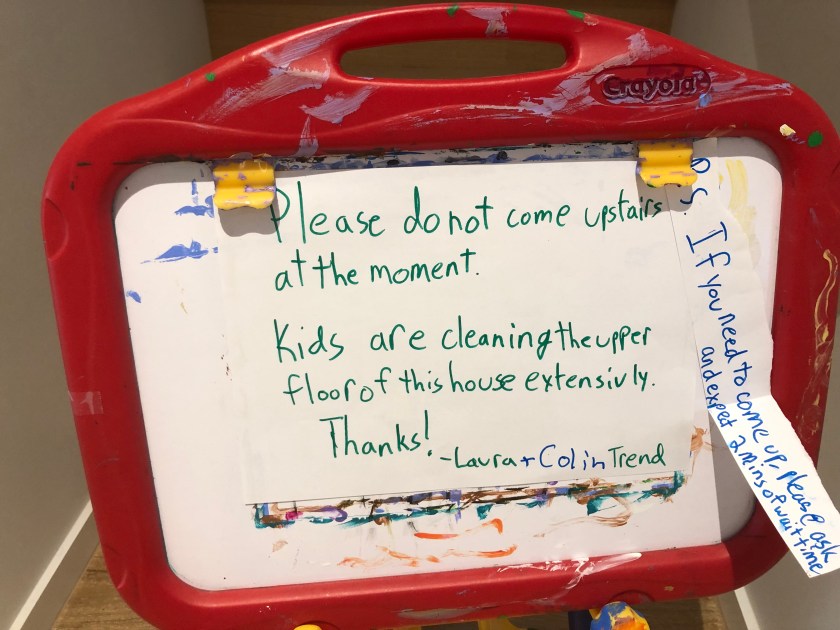 Crayola
Please do not come upstairs
at the moment.
Kids are cleaning the upper
floor of this house extensivly.
Thanks!
-Laura + Colin Trend
P.S. If you need to come up, please ask
and expect 2 mins of wait time